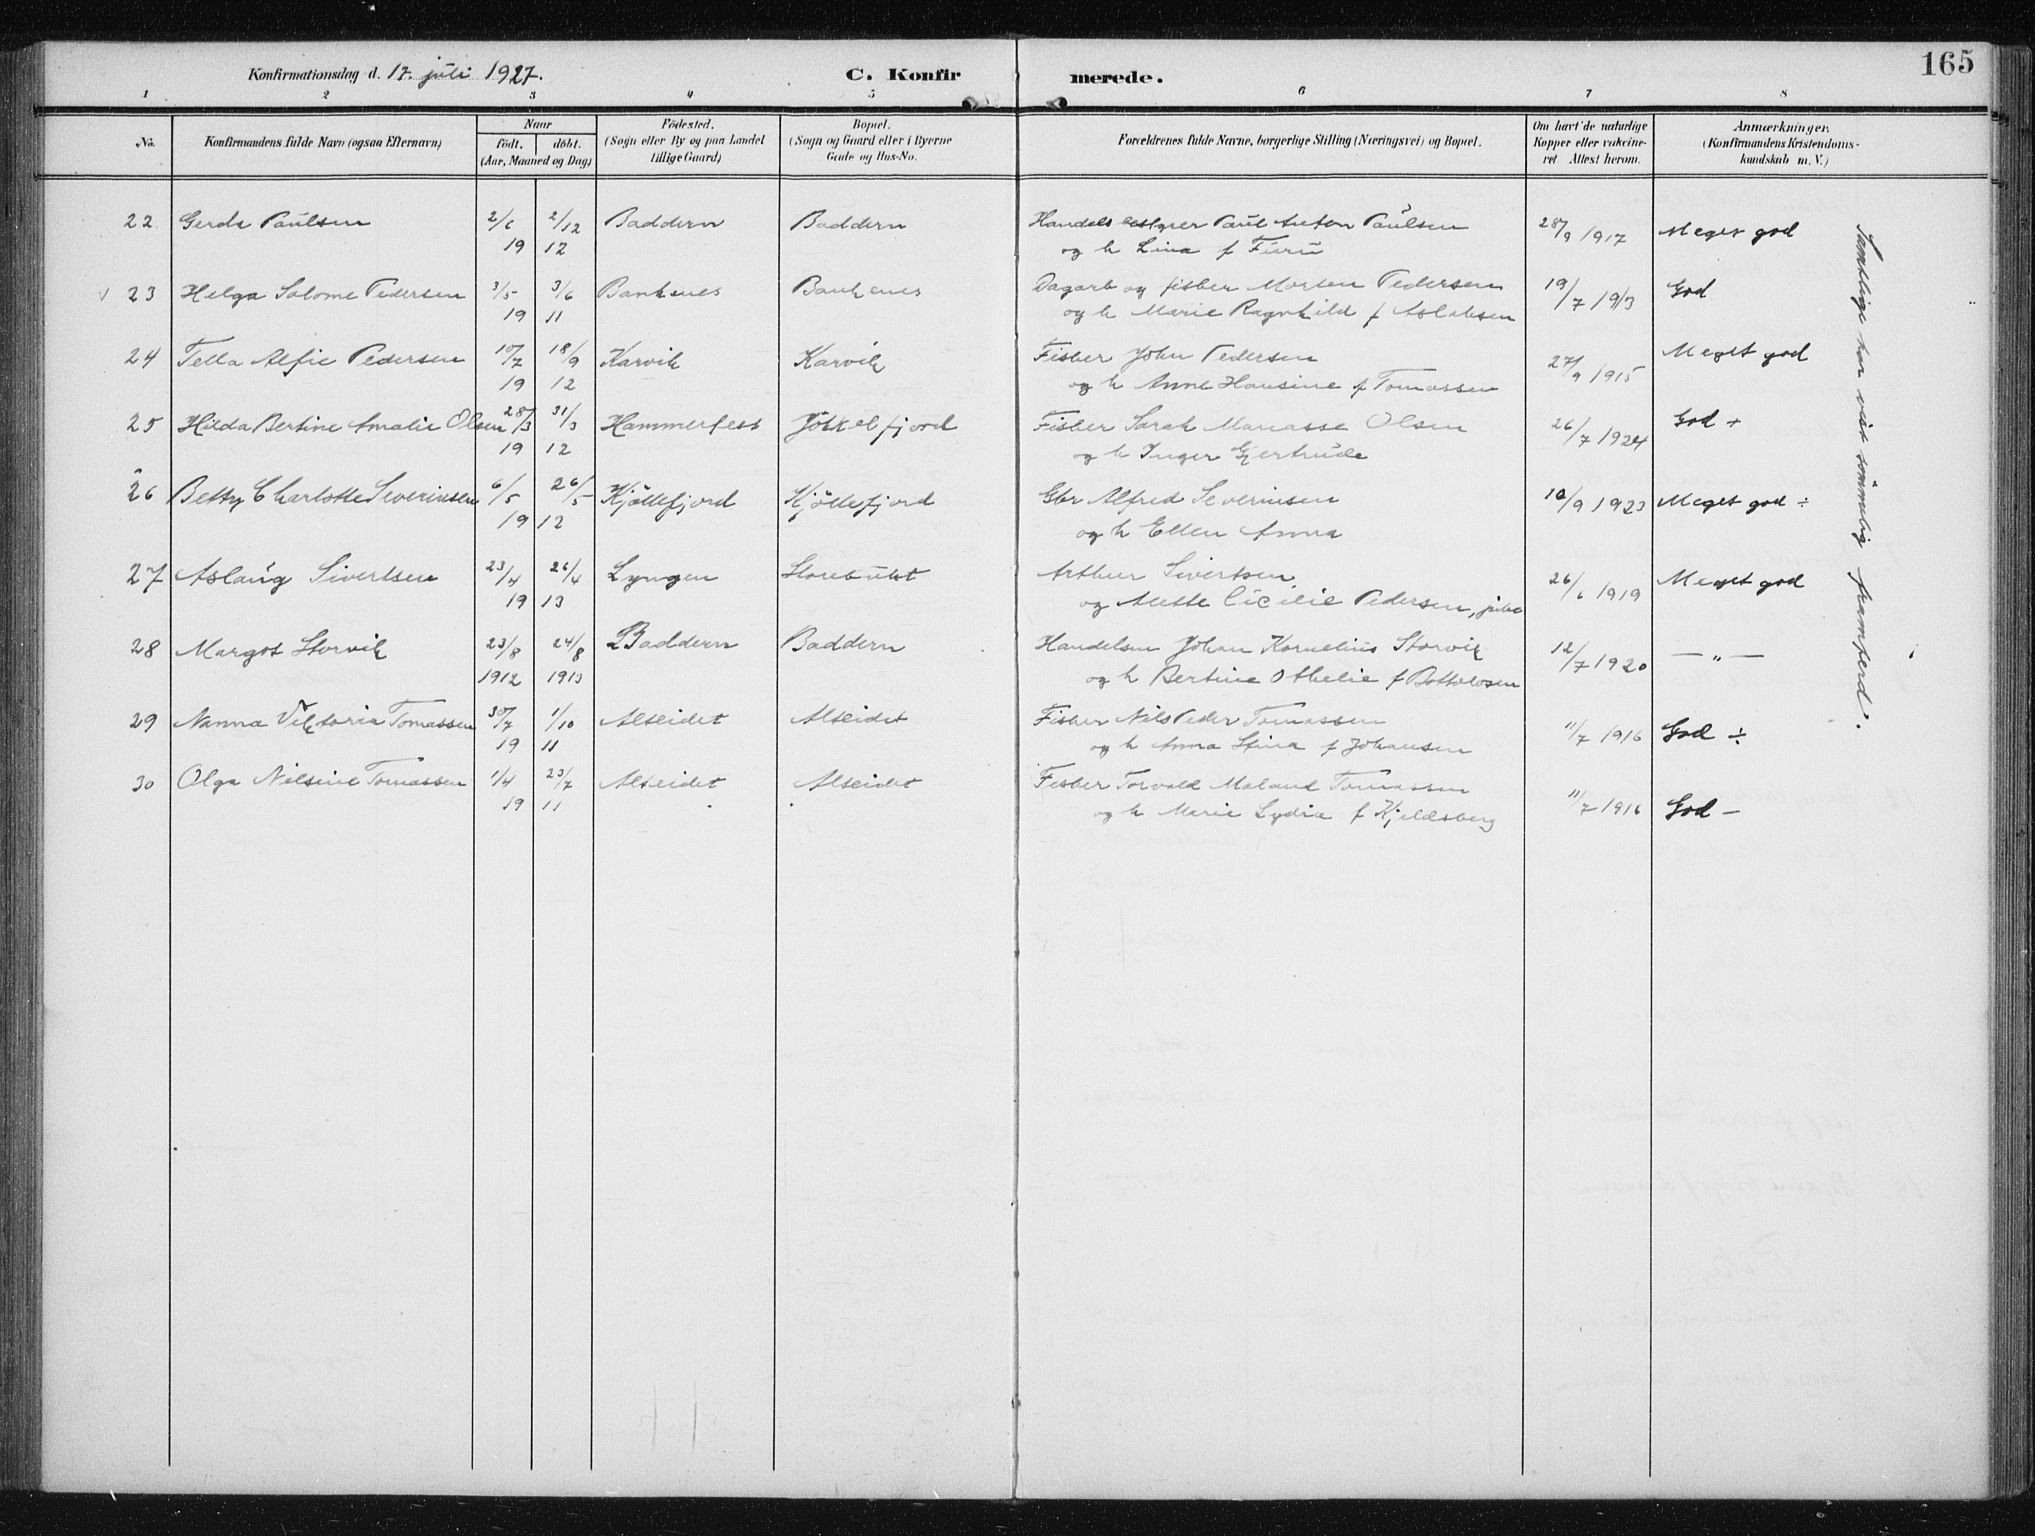 165
Konfirmationsdag d. 17. juli 1927. C. Konfir merede.
1 2 3 4 5 6 7 8
No. Konfirmandens fulde Navn (ogsaa Efternavn) Naar født. døbt. (Aar, Maaned og Dag) Fødested. (Sogn eller By og paa Landet tillige Gaard) Bopæl. (Sogn og Gaard eller i Byerne Gade og Hus-No. Forældrenes fulde Navne, borgerlige Stilling (Næringsvei) og Bopæl. Om havt de naturlige Kopper eller vakcineret Attest herom. Anmærkninger. (Konfirmandens Kristendomskundskab m. V.)
22 Gerda Paulsen 2/6 2/12 Baddern Baddern Handels Paul Anton Paulsen 28/9 1917 Meget god
19 12 og h Lina f Furu
23 Helga Salome Pedersen 3/5 3/6 Bankenes Bankenes Dagarb og fisker Morten Pedersen 19/7 1913 God
19 11 og h Marie Ragnhild f Aslaksen
24 Tella Alfie Pedersen 10/7 18/9 Karvik Karvik Fisker John Pedersen 27/9 1915 Meget god
19 12 og h Anne Hansine f Tomassen
25 Hilda Bertine Amalie Olsen 28/3 31/3 Hammerfest Jökkelfjord Fisker Sarak Manasse Olsen 26/7 1924 God +
19 12 og h Inger Gjertrude
26 Betty Charlotte Severinsen 6/5 26/5 Kjöllefjord Kjöllefjord Gbr Alfred Severinsen 10/9 1923 Meget god ÷
19 12 og h Ellen Anna
27 Aslaug Sivertsen 23/4 26/4 Lyngen Storebukt Arthur Sivertsen 26/6 1919 Meget god
19 13 og Anette Cicilie Pedersen, pike
28 Margot Storvik 23/8 24/8 Baddern Baddern Handelsm Johan Kornelius Storvik 12/7 1920 — „ —
1912 1913 og h Bertine Othelie f Bottolvsen
29 Nanna Viktoria Tomassen 30/7 1/10 Alteidet Alteidet Fisker Nils Peder Tomassen 11/7 1916 God ÷
19 11 og h Anna Stina f Johansen
30 Olga Nilsine Tomassen 1/4 23/7 Alteidet Alteidet Fisker Torvald Moland Tomassen 11/7 1916 God —
19 11 og h Marie Lydia f Kjeldsberg
Samtlige har vist sömmelig framferd.